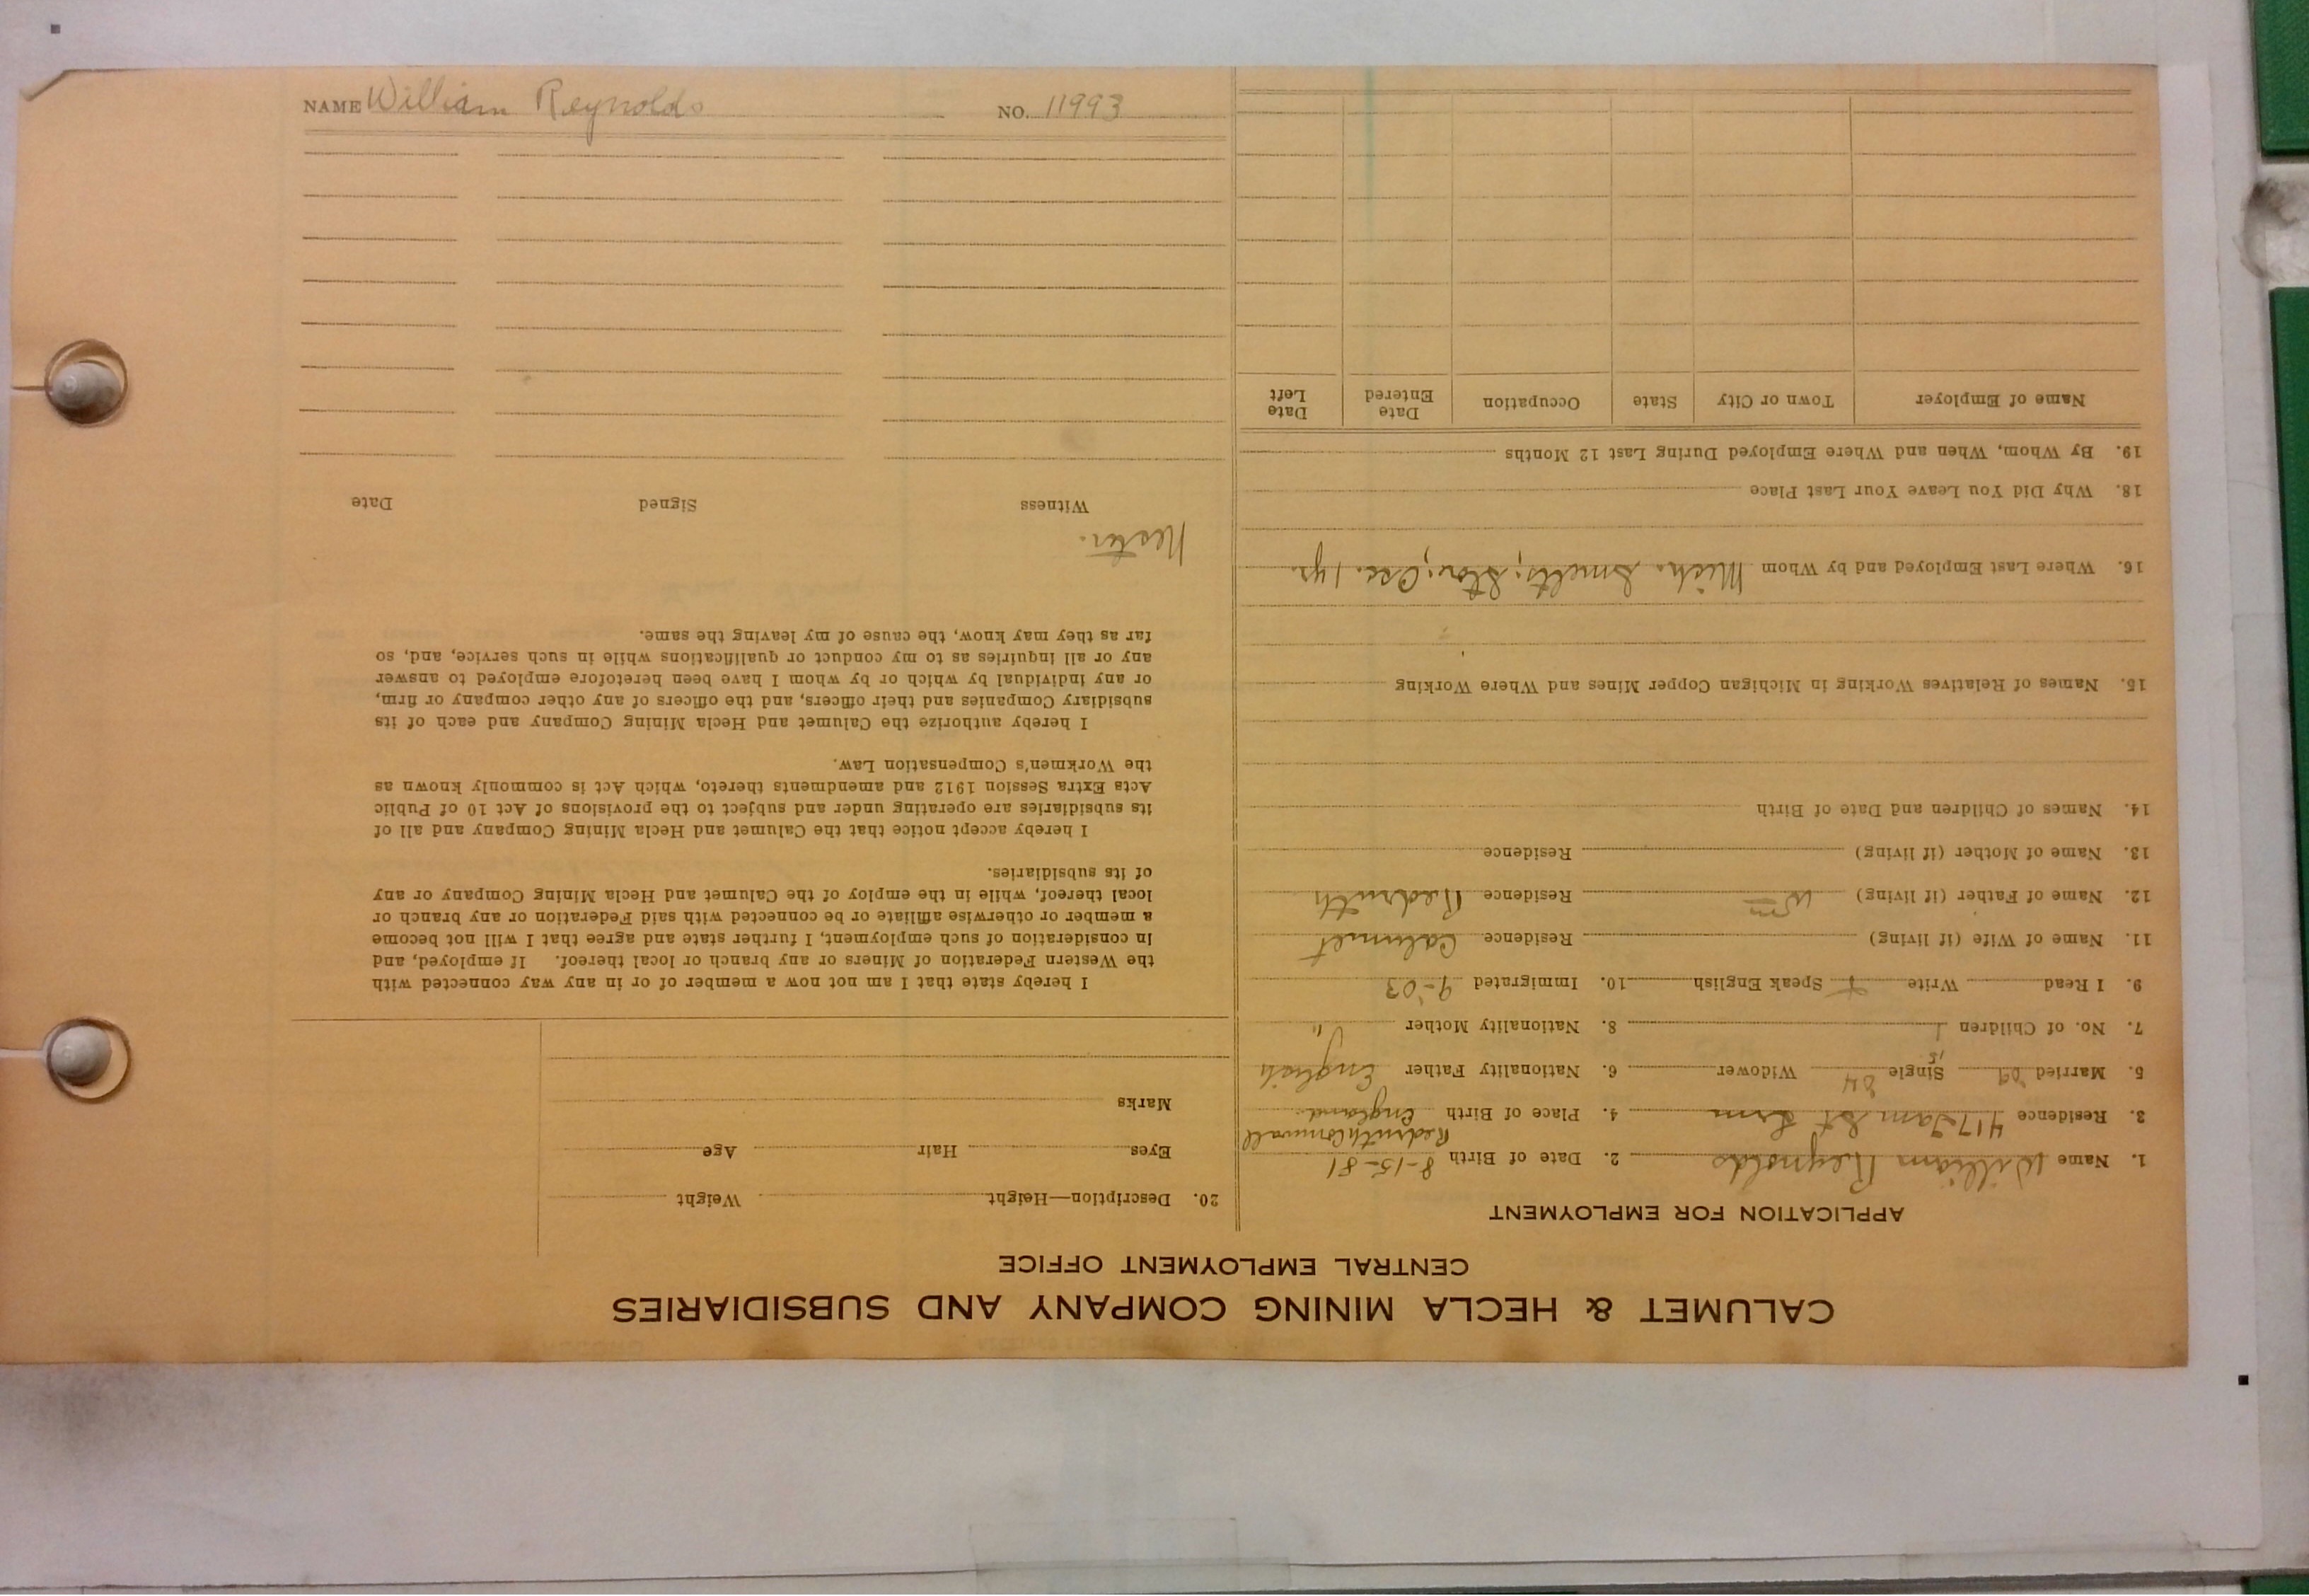 NAME William Reynolds NO. 11993
CALUMET & HECLA MINING COMPANY AND SUBSIDIARIES
CENTRAL EMPLOYMENT OFFICE
APPLICATION FOR EMPLOYMENT
1. Name William Reynolds 2. Date of Birth 8-15-81
Redruth Cornwall
3. Residence 417 Tam St 4. Place of Birth England
5. Married 09 Single Widower 6. Nationality Father English
7. No. of Children 1 8. Nationality Mother "
9. I Read Write Speak English 10. Immigrated 9-'03
11. Name of Wife (if living) Residence Calumet
12. Name of Father (if living) Wm Residence Redruth
13. Name of Mother (if living) Residence
14. Names of Children and Date of Birth
15. Names of Relatives Working in Michigan Copper Mines and Where Working
16. Where Last Employed and by Whom Mich. Smelts; Osc. 1 yr.
18. Why Did You Leave Your Last Place
19. By Whom, When and Where Employed During Last 12 Months
Name of Employer Town or City State Occupation Date Entered Date Left
20. Description—Height Weight
Eyes Hair Age
Marks
I hereby state that I am not now a member of or in any way connected with
the Western Federation of Miners or any branch or local thereof. If employed, and
in consideration of such employment, I further state and agree that I will not become
a member or otherwise affiliate or be connected with said Federation or any branch or
local thereof, while in the employ of the Calumet and Hecla Mining Company or any
of its subsidiaries.
I hereby accept notice that the Calumet and Hecla Mining Company and all of
its subsidiaries are operating under and subject to the provisions of Act 10 of Public
Acts Extra Session 1912 and amendments thereto, which Act is commonly known as
the Workmen's Compensation Law.
I hereby authorize the Calumet and Hecla Mining Company and each of its
subsidiary Companies and their officers, and the officers of any other company or firm,
or any individual by which or by whom I have been heretofore employed to answer
any or all inquiries as to my conduct or qualifications while in such service, and, so
far as they may know, the cause of my leaving the same.
Nester.
Witness Signed Date